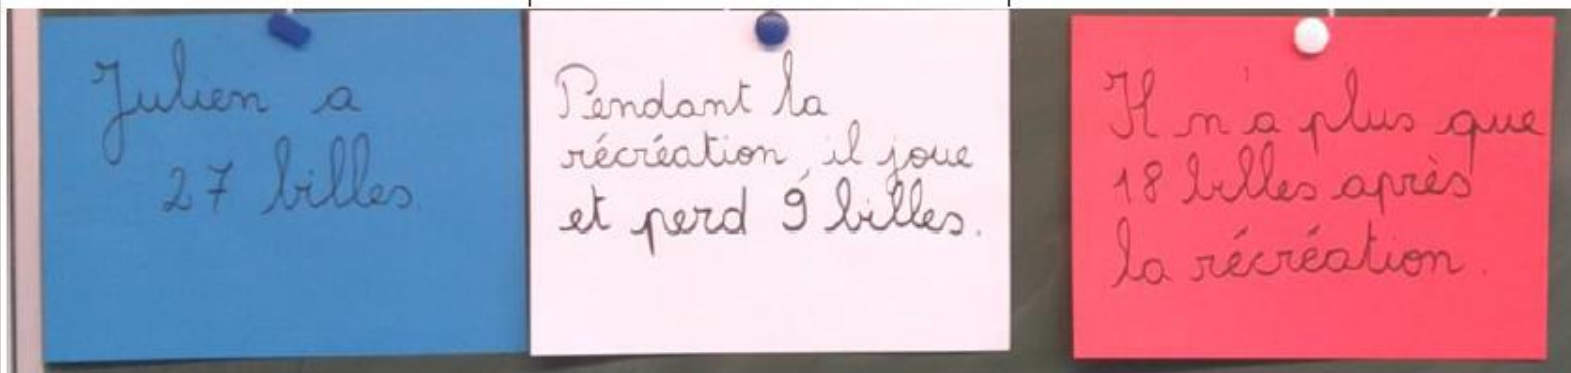 Julien a
27 billes.
Pendant la
récréation, il joue
et perd 9 billes.
Il n'a plus que
18 billes après
la récréation.